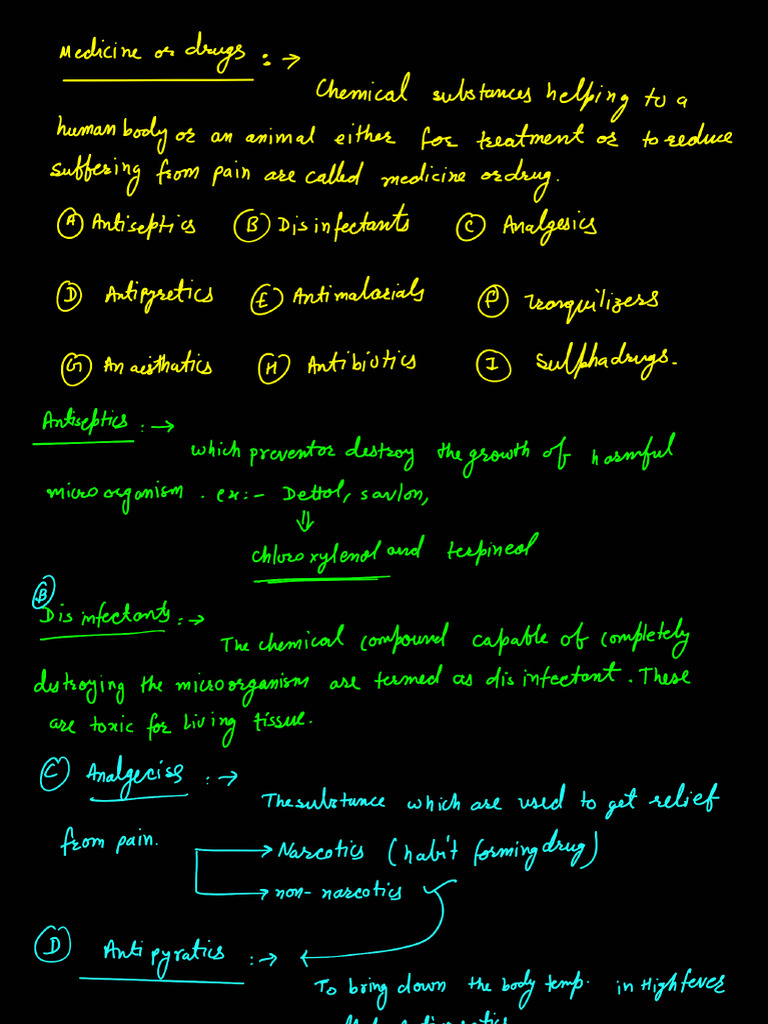 Medicine or drugs :→
Chemical substances helping to a
human body or an animal either for treatment or to reduce
suffering from pain are called medicine or drug.
Ⓐ Antiseptics Ⓑ Disinfectants Ⓒ Analgesics
Ⓓ Antipyretics Ⓔ Antimalarials Ⓕ Tranquilizers
Ⓖ Anaesthatics Ⓗ Antibiotics Ⓘ Sulphadrugs.
Antiseptics :→
which prevent or destroy the growth of harmful
microorganism. ex:- Dettol, savlon,
⇓
chloroxylenol and terpineol
Ⓑ
Disinfectants :→
The chemical compound capable of completely
destroying the microorganism are termed as disinfectant. These
are toxic for living tissue.
Ⓒ Analgeciss :→
The substance which are used to get relief
from pain.
→ Narcotics (habit forming drug)
→ non-narcotics
Ⓓ Antipyratics :→ ←
To bring down the body temp. in High fever